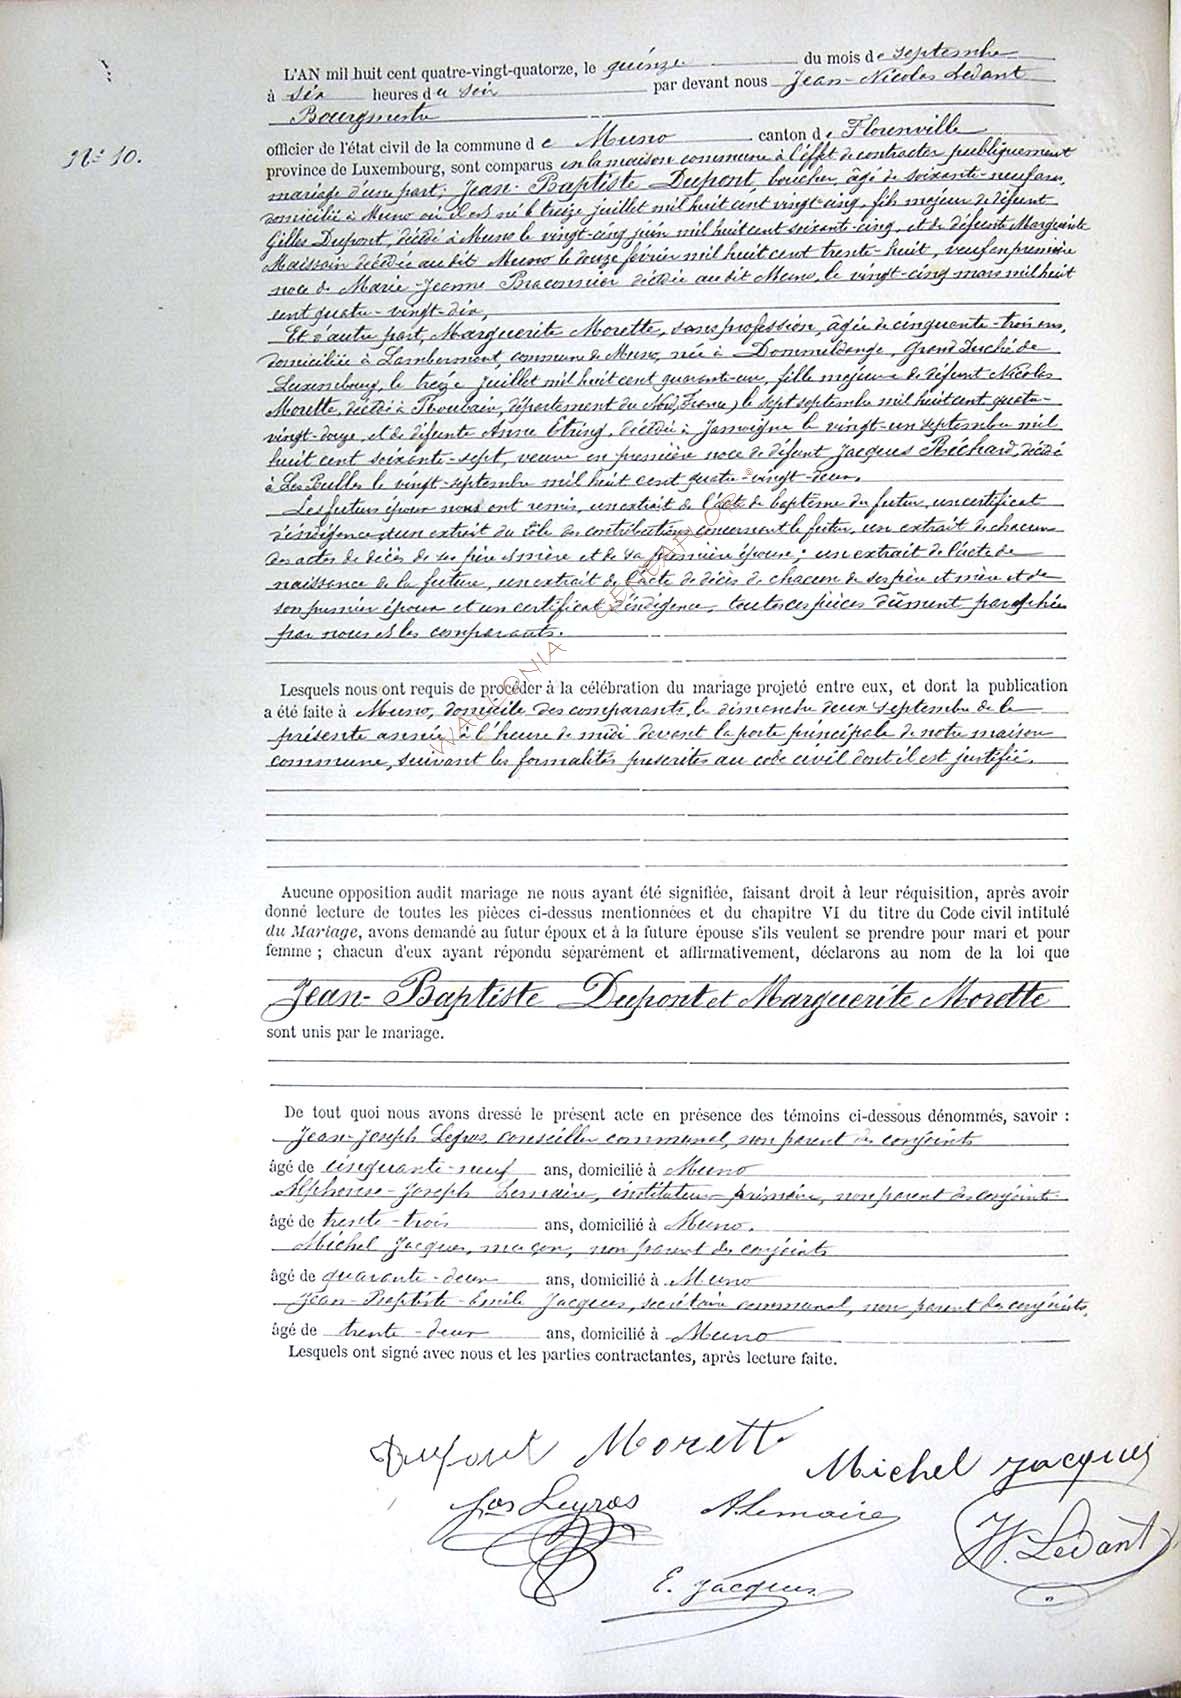 L'AN mil huit cent quatre-vingt-quatorze, le quinze du mois de septembre
à six heures du soir par devant nous Jean-Nicolas Ledant
Bourgmestre
N° 10.
officier de l'état civil de la commune de Muno canton de Florenville
province de Luxembourg, sont comparus en la maison commune à l'effet de contracter publiquement
mariage d'une part; Jean-Baptiste Dupont, boucher, âgé de soixante-neuf ans,
domicilié à Muno où il est né le treize juillet mil huit cent vingt-cinq, fils majeur de défunt
Gilles Dupont, décédé à Muno le vingt-cinq juin mil huit cent soixante-cinq, et de défunte Marguerite
Maissin décédée au dit Muno le douze février mil huit cent trente-huit, veuf en première
noce de Marie-Jeanne Braconnier décédée au dit Muno, le vingt-cinq mars mil huit
cent quatre-vingt-dix,
Et d'autre part, Marguerite Morette, sans profession, âgée de cinquante-trois ans,
domiciliée à Lambermont, commune de Muno, née à Dommeldange, Grand Duché de
Luxembourg, le treize juillet mil huit cent quarante-un, fille majeure de défunt Nicolas
Morette, décédé à Roubaix, département du Nord, France, le sept septembre mil huit cent quatre-
vingt-douze, et de défunte Anne Etring, décédée à Jamoigne le vingt-un septembre mil
huit cent soixante-sept, veuve en première noce de défunt Jacques Réchard, décédé
à Les Bulles le vingt-septembre mil huit cent quatre-vingt-deux.
Les futurs époux nous ont remis, un extrait de l'acte de baptême du futur, un certificat
d'indigence et un extrait du rôle des contributions concernant le futur, un extrait de chacun
des actes de décès de ses père et mère et de sa première épouse; un extrait de l'acte de
naissance de la future, un extrait de l'acte de décès de chacun de ses père et mère et de
son premier époux et un certificat d'indigence, toutes ces pièces dûment paraphées
par nous et les comparants.
Lesquels nous ont requis de procéder à la célébration du mariage projeté entre eux, et dont la publication
a été faite à Muno, domicile des comparants, le dimanche deux septembre de la
présente année à l'heure de midi devant la porte principale de notre maison
commune, suivant les formalités prescrites au code civil dont il est justifié.
Aucune opposition audit mariage ne nous ayant été signifiée, faisant droit à leur réquisition, après avoir
donné lecture de toutes les pièces ci-dessus mentionnées et du chapitre VI du titre du Code civil intitulé
du Mariage, avons demandé au futur époux et à la future épouse s'ils veulent se prendre pour mari et pour
femme ; chacun d'eux ayant répondu séparément et affirmativement, déclarons au nom de la loi que
Jean-Baptiste Dupont et Marguerite Morette
sont unis par le mariage.
De tout quoi nous avons dressé le présent acte en présence des témoins ci-dessous dénommés, savoir :
Jean-Joseph Legros, conseiller communal, non parent des conjoints
âgé de cinquante-neuf ans, domicilié à Muno
Alphonse-Joseph Lemaire, instituteur primaire, non parent des conjoints
âgé de trente-trois ans, domicilié à Muno.
Michel Jacques, maçon, non parent des conjoints
âgé de quarante-deux ans, domicilié à Muno
Jean-Baptiste-Emile Jacques, secrétaire communal, non parent des conjoints,
âgé de trente-deux ans, domicilié à Muno
Lesquels ont signé avec nous et les parties contractantes, après lecture faite.
Dupont Morette Michel Jacques
Jos Legros A Lemaire JN. Ledant
E. Jacques
WALLONIA